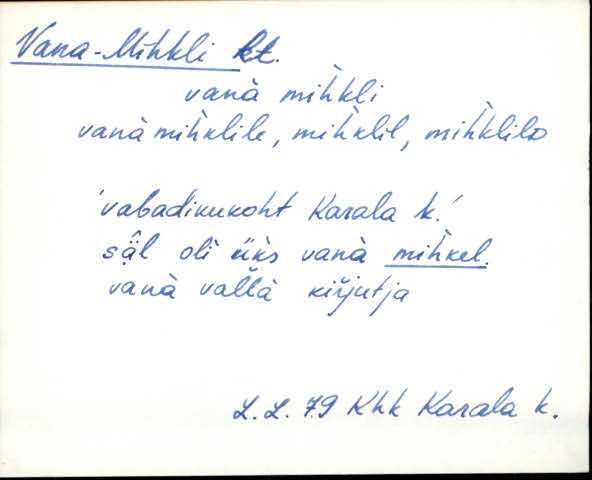 Vana-Mihkli kt.
vanà mìhkli
vanà mìhklile, mìhklil, mìhklilo
'vabadikukoht Karala k.'
säl oli üks vanà mìhkel.
vanà vallà kirjutja
L. L. 79 Khk Karala k.